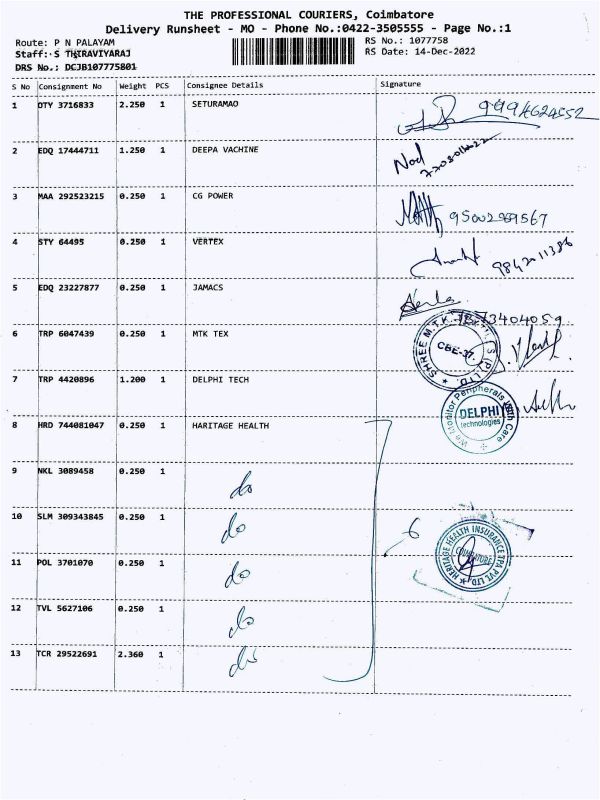 THE PROFESSIONAL COURIERS, Coimbatore
Delivery Runsheet - MO - Phone No.:0422-3505555 - Page No.:1
Route: P N PALAYAM
Staff: S THIRAVIYARAJ
DRS No.: DCJB107775801
RS No.: 1077758
RS Date: 14-Dec-2022
S No Consignment No Weight PCS Consignee Details Signature
1 OTY 3716833 2.250 1 SETURAMAO 9994624552
2 EDQ 17444711 1.250 1 DEEPA VACHINE
3 MAA 292523215 0.250 1 CG POWER 9500289567
4 STY 64495 0.250 1 VERTEX 9842011386
5 EDQ 23227877 0.250 1 JAMACS
6 TRP 6047439 0.250 1 MTK TEX
SHREE M.T.K. (P) LTD.
CBE-37.
7 TRP 4420896 1.200 1 DELPHI TECH
We Monitor Peripherals With Care
DELPHI
technologies
8 HRD 744081047 0.250 1 HARITAGE HEALTH
9 NKL 3089458 0.250 1 do
10 SLM 309343845 0.250 1 do 6
HERITAGE HEALTH INSURANCE TPA PVT. LTD.
COIMBATORE
11 POL 3701070 0.250 1 do
12 TVL 5627106 0.250 1 do
13 TCR 29522691 2.360 1 do